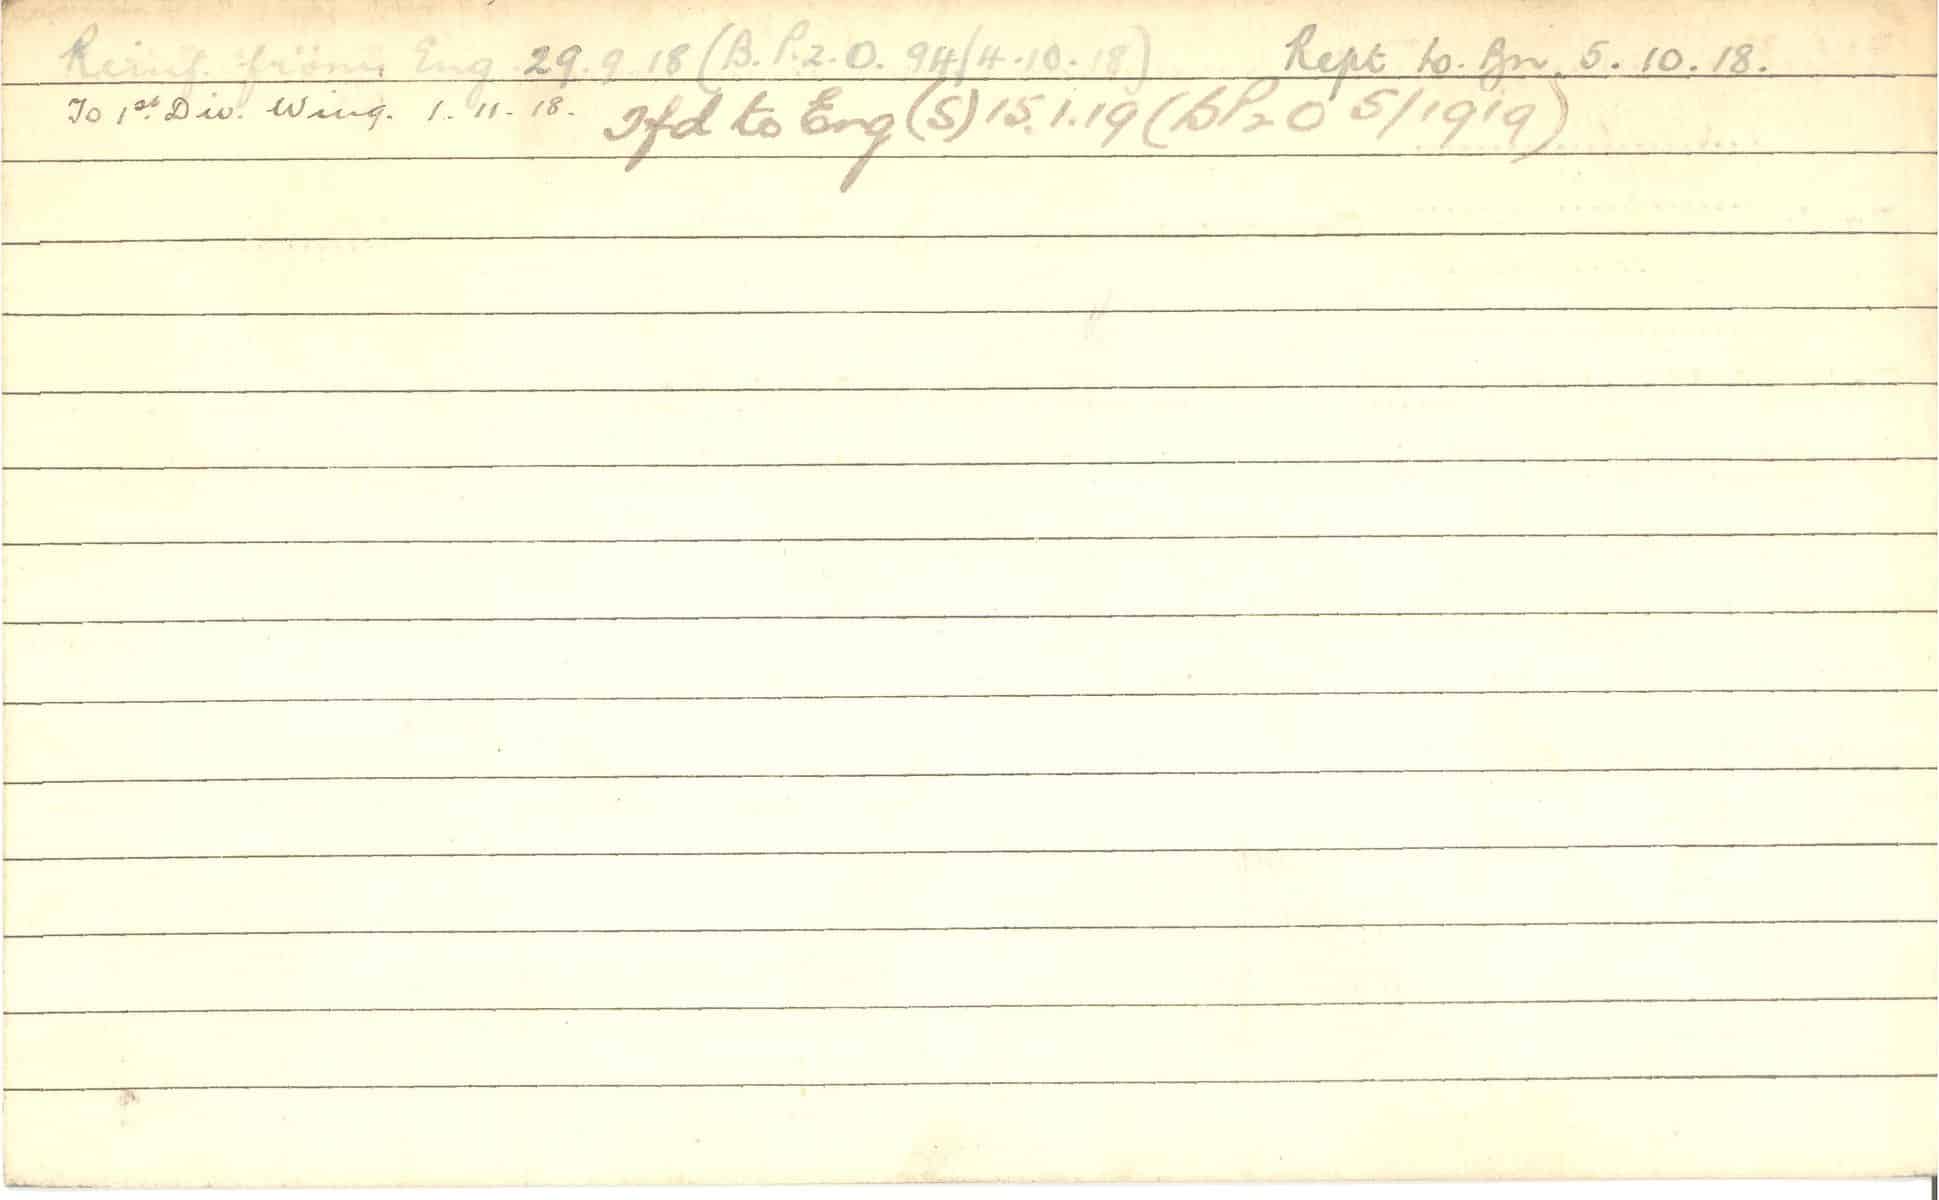 Reinf. from Eng 29.9.18 (B.P.2.O. 94/4.10.18) Rept to. Bn. 5.10.18.
To 1st Div. Wing. 1.11.18. Tfd to Eng (S) 15.1.19 (BP2O 5/1919)